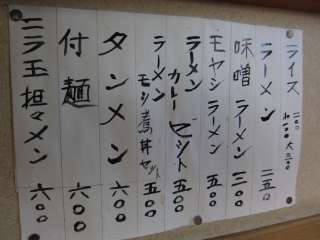 ライス 二〇〇 小一〇〇 大三〇〇
ラーメン 二五〇
味噌ラーメン 三〇〇
モヤシラーメン 五〇〇
ラーメン カレーセット 五〇〇
ラーメン モシ鳥丼セット 五〇〇
タンメン 六〇〇
付麺 六〇〇
ニラ玉担々メン 六〇〇